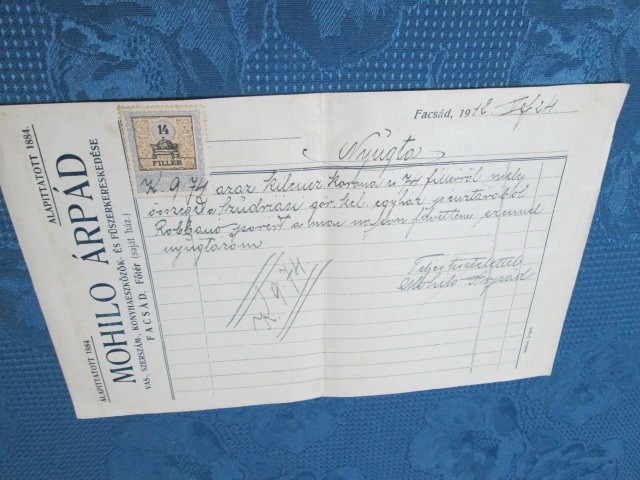 ALAPITTATOTT 1884.
ALAPITTATOTT 1884.
MOHILO ÁRPÁD
VAS, SZERSZÁM-, KONYHAESZKÖZÖK- ÉS FŰSZERKERESKEDÉSE
FACSÁD, Főtér (saját ház.)
14
FILLÉR
Facsád, 1912 IV/24
Nyúgta
K. 9.74 azaz kilencz korona és 74 fillérről mely
összeget a gör. kel. egyház pénztárából
a mai napon felvettem ezennel
nyugtázom
Teljes tisztelettel
Mohilo Árpád
K 9.74